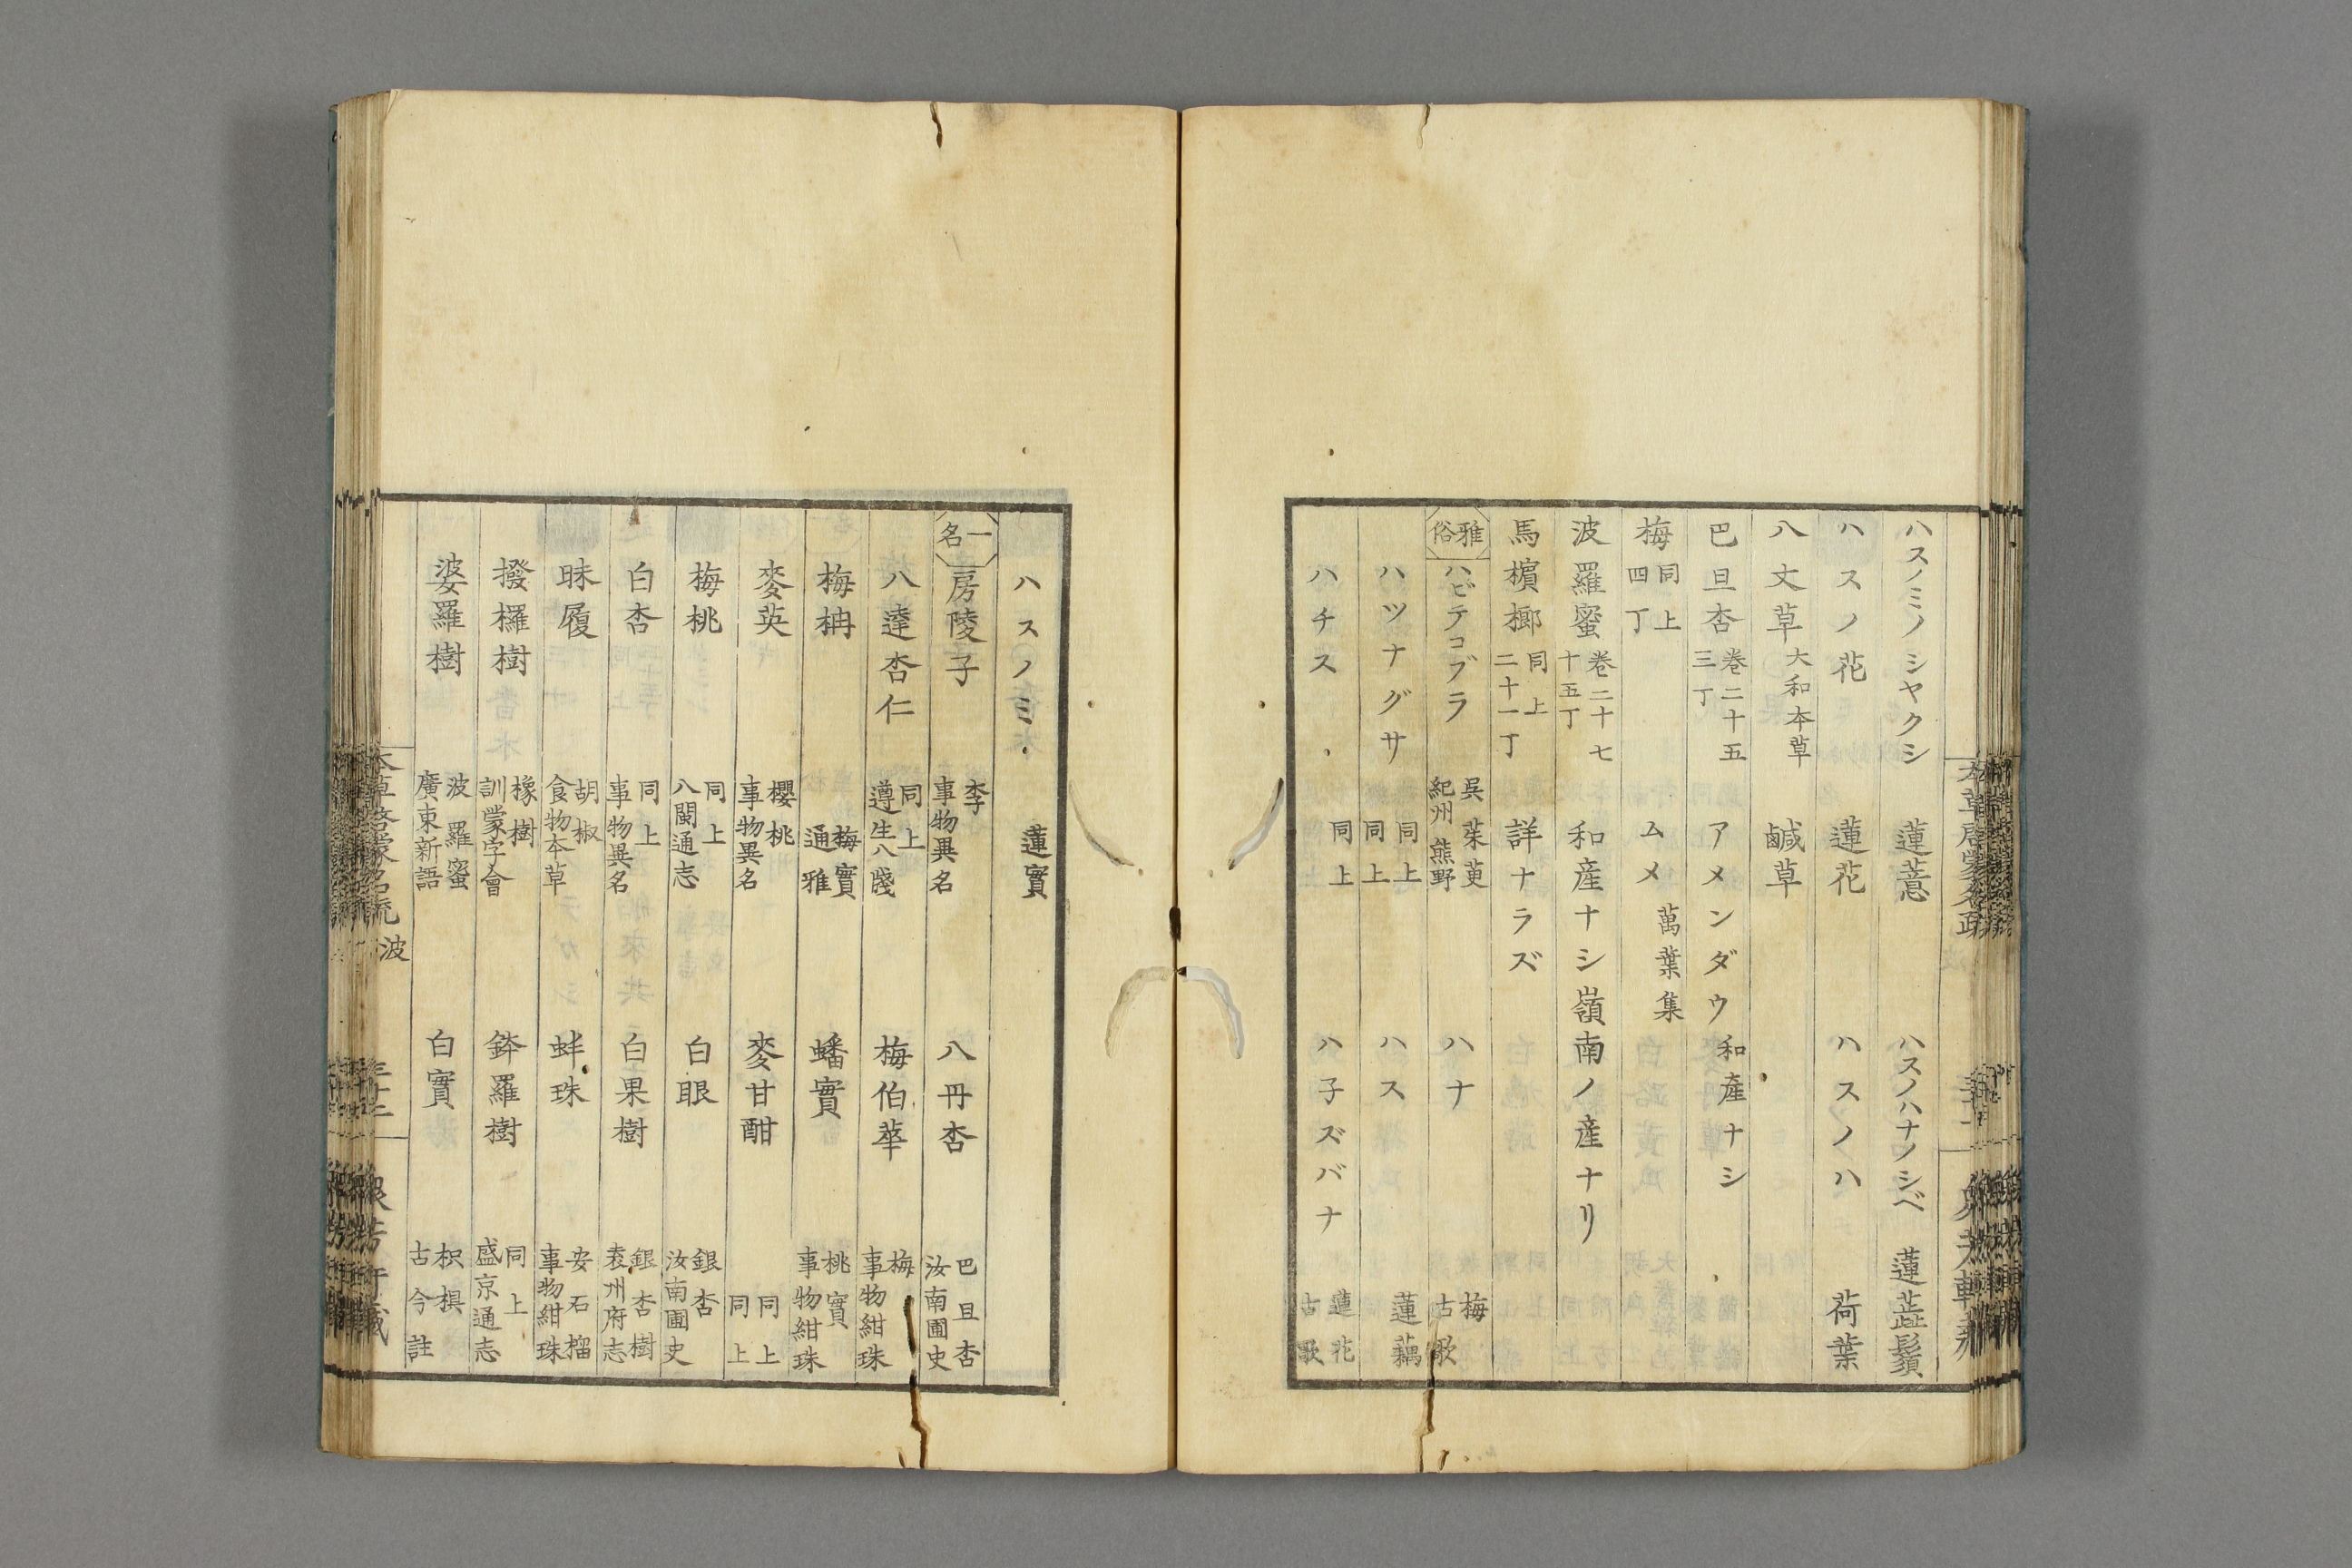 ハスノミノシヤクシ 蓮薏 ハスノハナノシベ 蓮蕋鬚
ハスノ花 蓮花 ハスノハ 荷葉
八丈草 大和本草 鹹草
巴旦杏 卷二十五三丁 アメンダウ 和產ナシ
梅 同上四丁 ムメ 萬葉集
波羅蜜 卷二十七十五丁 和產ナシ嶺南ノ產ナリ
馬檳榔 同上二十一丁 詳ナラズ
雅俗 ハビテコブラ 吳茱萸紀州熊野 ハナ 梅古歌
ハツナグサ 同上同上 ハス 蓮藕
ハチス 同上 ハ子ズバナ 蓮花古歌
ハスノミ 蓮實
一名 房陵子 李事物異名 八丹杏 巴旦杏汝南圃史
八達杏仁 同上遵生八牋 梅伯華 梅事物紺珠
梅𣑥 梅實通雅 蟠實 桃實事物紺珠
麥英 櫻桃事物異名 麥甘酣 同上同上
梅桃 同上八閩通志 白眼 銀杏汝南圃史
白杏 同上事物異名 白果樹 銀杏樹袁州府志
昧履 胡椒食物本草 蚌珠 安石榴事物紺珠
撥欏樹 橡樹訓蒙字會 鉢羅樹 同上盛京通志
婆羅樹 波羅蜜廣東新語 白實 枳椇古今註
本草啓蒙名疏 波 三十二